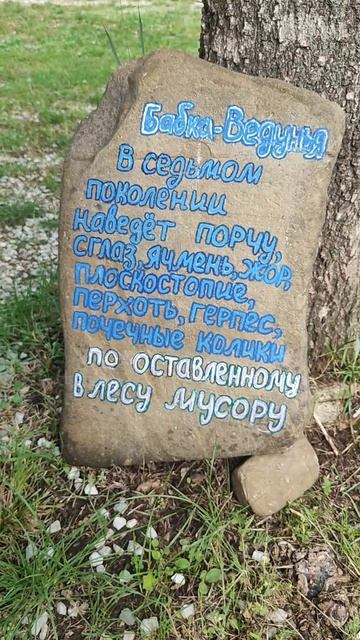 Бабка-Ведунья
В седьмом
поколении
наведёт порчу,
сглаз, ячмень, жор,
плоскостопие,
перхоть, герпес,
почечные колики
по оставленному
в лесу мусору